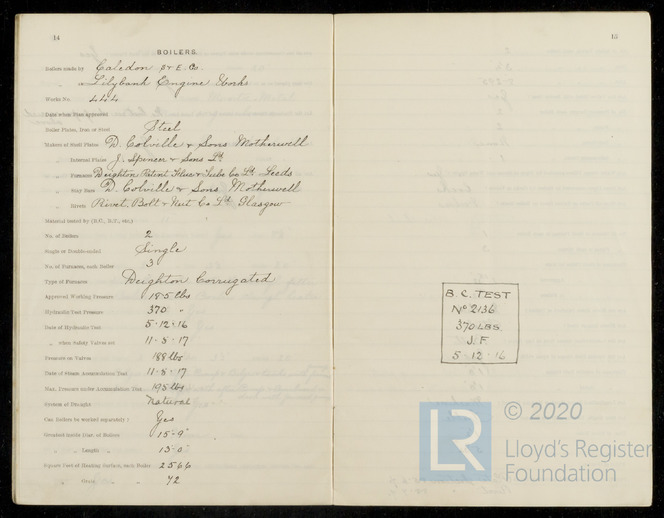 14
BOILERS.
Boilers made by Caledon S & E. Co.
" at Lilybank Engine Works
Works No. 444
Date when Plan approved
Boiler Plates, Iron or Steel Steel
Makers of Shell Plates D. Colville & Sons Motherwell
" Internal Plates J. Spencer & Sons Ld.
" Furnaces Deighton Patent Flue & Tube Co Ld Leeds
" Stay Bars D. Colville & Sons Motherwell
" Rivets Rivet, Bolt & Nut Co Ld Glasgow
Material tested by (B.C., B.T., &c.)
No. of Boilers 2
Single or Double-ended Single
No. of Furnaces, each Boiler 3
Type of Furnaces Deighton Corrugated
Approved Working Pressure 185 lbs
Hydraulic Test Pressure 370 "
Date of Hydraulic Test 5-12-16
" when Safety Valves set 11-5-17
Pressure on Valves 188 lbs
Date of Steam Accumulation Test 11-5-17
Max. Pressure under Accumulation Test 195 lbs
System of Draught Natural
Can Boilers be worked separately? Yes
Greatest inside Diam. of Boilers 15-9
" " Length " 13-0
Square Feet of Heating Surface, each Boiler 2566
" " Grate " " 72
15
B.C. TEST
No 2136
370 LBS
J. F.
5-12-16
LR
© 2020
Lloyd's Register
Foundation